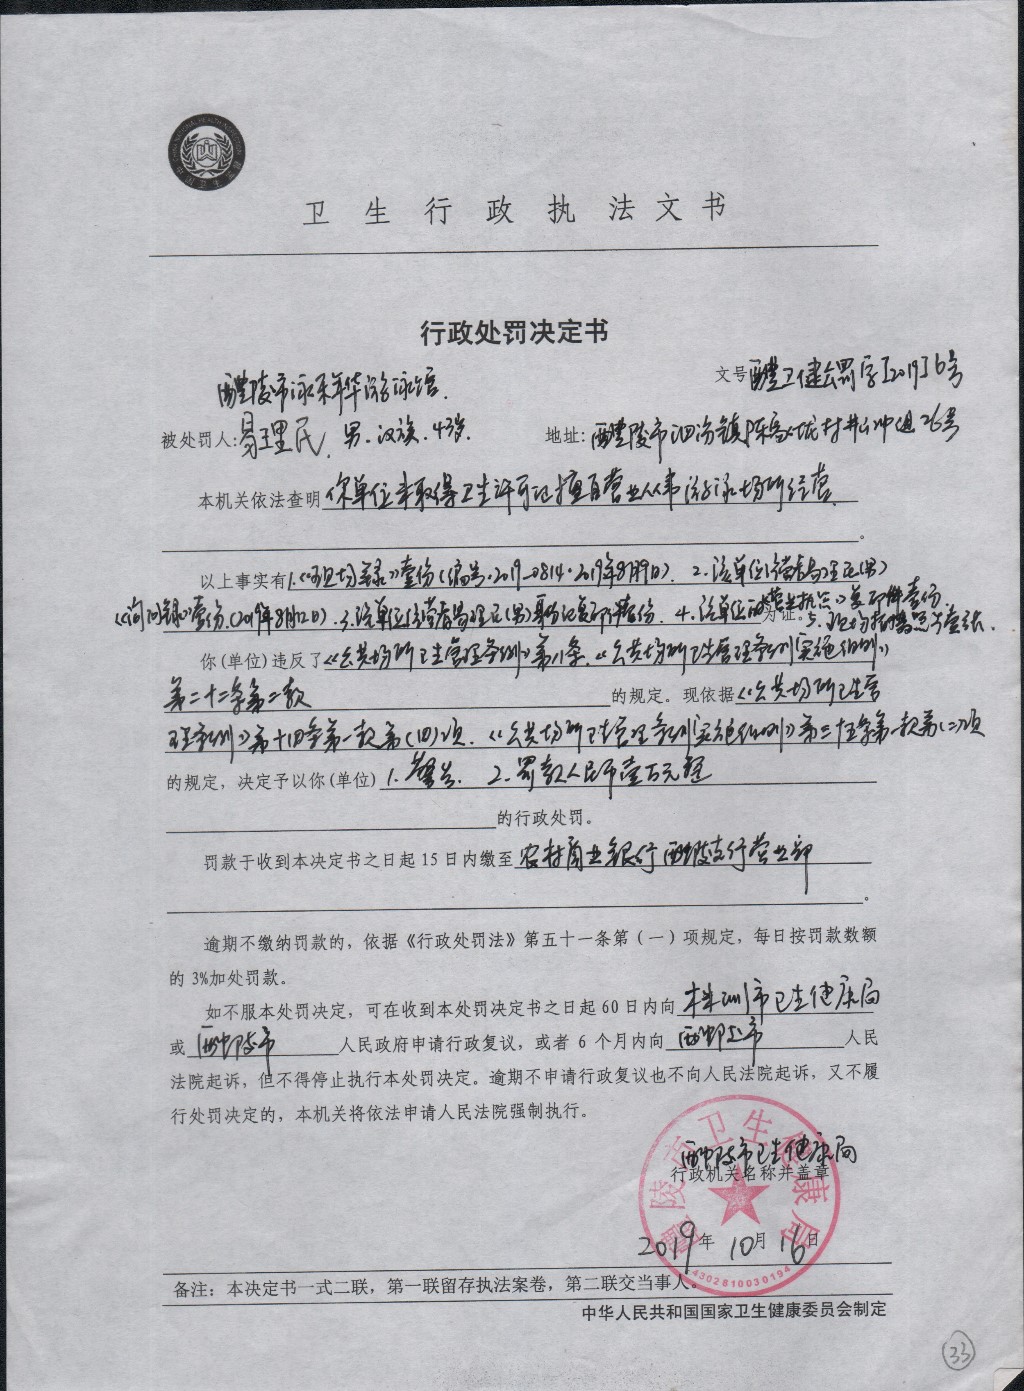 卫生行政执法文书
行政处罚决定书
文号醴卫健公罚字[2019]6号
醴陵市泳禾年华游泳馆
被处罚人:易理民 男.汉族.43岁. 地址:醴陵市泗汾镇陈家垅村井冲组26号
本机关依法查明你单位未取得卫生许可证擅自营业从事游泳场所经营
。
以上事实有1.《现场笔录》壹份(编号:2019-0814.2019年8月9日). 2.该单位经营者易理民(男)
《询问笔录》壹份(2019年8月12日). 3.该单位经营者易理民(男)身份证复印件壹份. 4.该单位的《营业执照》复印件壹份
为证。5.现场拍摄照片壹张.
你(单位)违反了《公共场所卫生管理条例》第八条.《公共场所卫生管理条例实施细则》
第二十二条第二款 的规定。现依据《公共场所卫生管
理条例》第十四条第一款第(四)项.《公共场所卫生管理条例实施细则》第三十五条第一款第(二)项
的规定，决定予以你(单位)1.警告. 2.罚款人民币壹万元整
的行政处罚。
罚款于收到本决定书之日起15日内缴至农村商业银行醴陵支行营业部
。
逾期不缴纳罚款的，依据《行政处罚法》第五十一条第（一）项规定，每日按罚款数额
的3%加处罚款。
如不服本处罚决定，可在收到本处罚决定书之日起60日内向株洲市卫生健康局
或醴陵市人民政府申请行政复议，或者6个月内向醴陵市人民
法院起诉，但不得停止执行本处罚决定。逾期不申请行政复议也不向人民法院起诉，又不履
行处罚决定的，本机关将依法申请人民法院强制执行。
醴陵市卫生健康局
醴陵市卫生健康局
行政机关名称并盖章
2019年10月16日
4302810030194
备注：本决定书一式二联，第一联留存执法案卷，第二联交当事人。
中华人民共和国国家卫生健康委员会制定
33